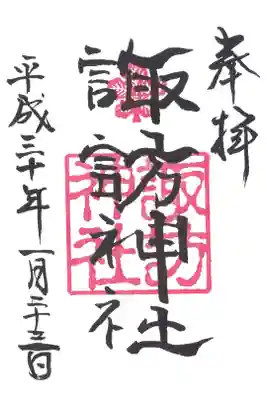 奉拝
諏訪神社
諏訪
神社
平成三十年一月二十三日